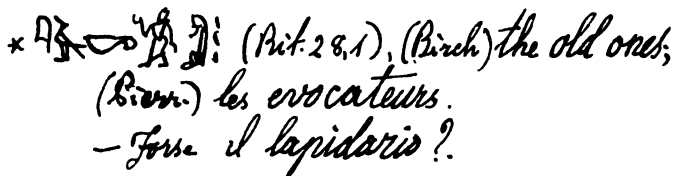 * (Rit. 28,1), (Birch) the old ones;
(Pierr.) les evocateurs.
— Forse il lapidario?.